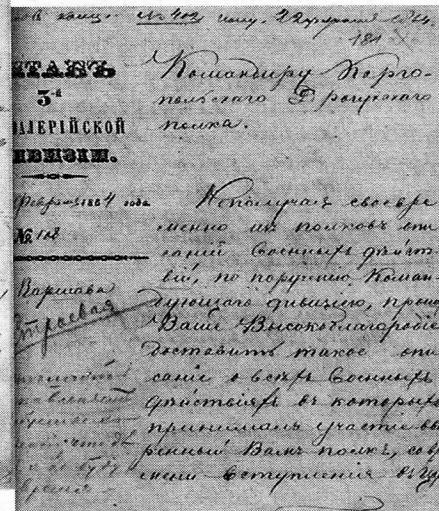 № 402 22 1864.
181
ШТАБЪ
3-й
ВАЛЕРІЙСКОЙ
ДИВИЗІИ.
Февраля 1864 года
№ 108
Варшава
Строевая
Командиру Карго-
польскаго Драгунскаго
полка.
Неполучая своевре
менно изъ полковъ опи
саній Военныхъ дѣйст-
вій, по порученію Коман-
дующаго дивизіею, прошу
Ваше Высокоблагородіе
доставить такое опи
саніе о всѣхъ Военныхъ
дѣйствіяхъ въ которыхъ
принималъ участіе ввѣ
ренный Вамъ полкъ, со вре
мени вступленія въ